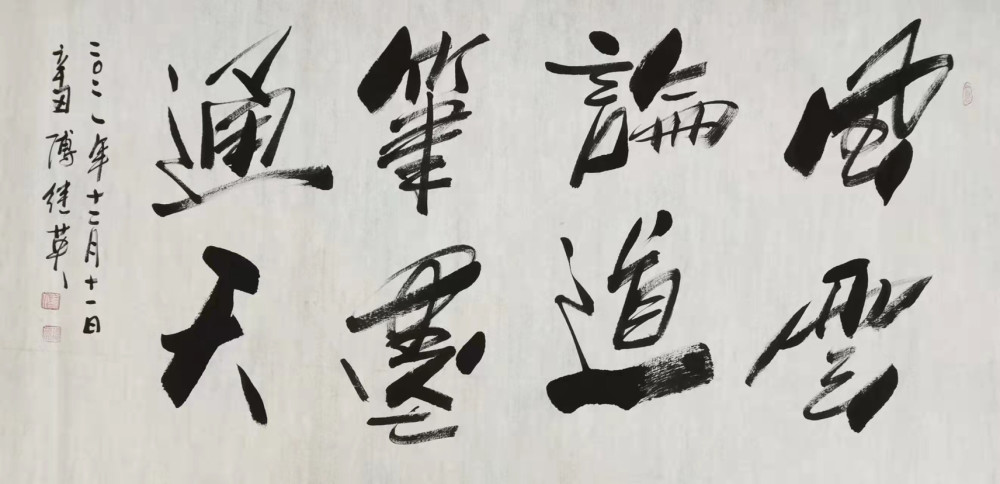 風雲
論道
筆墨
通天
二〇二一年十二月十一日
辛丑 傅继英